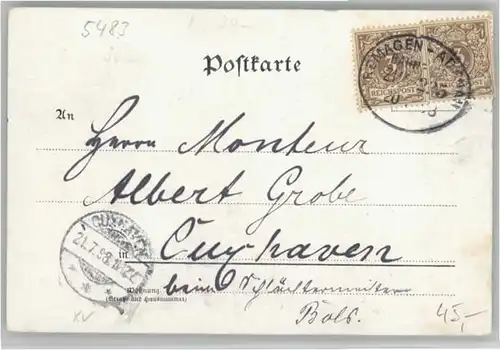 5483
Postkarte
3 REICHSPOST 3 REICHSPOST
An
Herrn Monteur
Albert Grobe
in Cuxhaven
CUXHAVEN
21.7.98
Wohnung
(Straße und Hausnummer)
beim Schlächtermeister
Bols.
XV
45,-